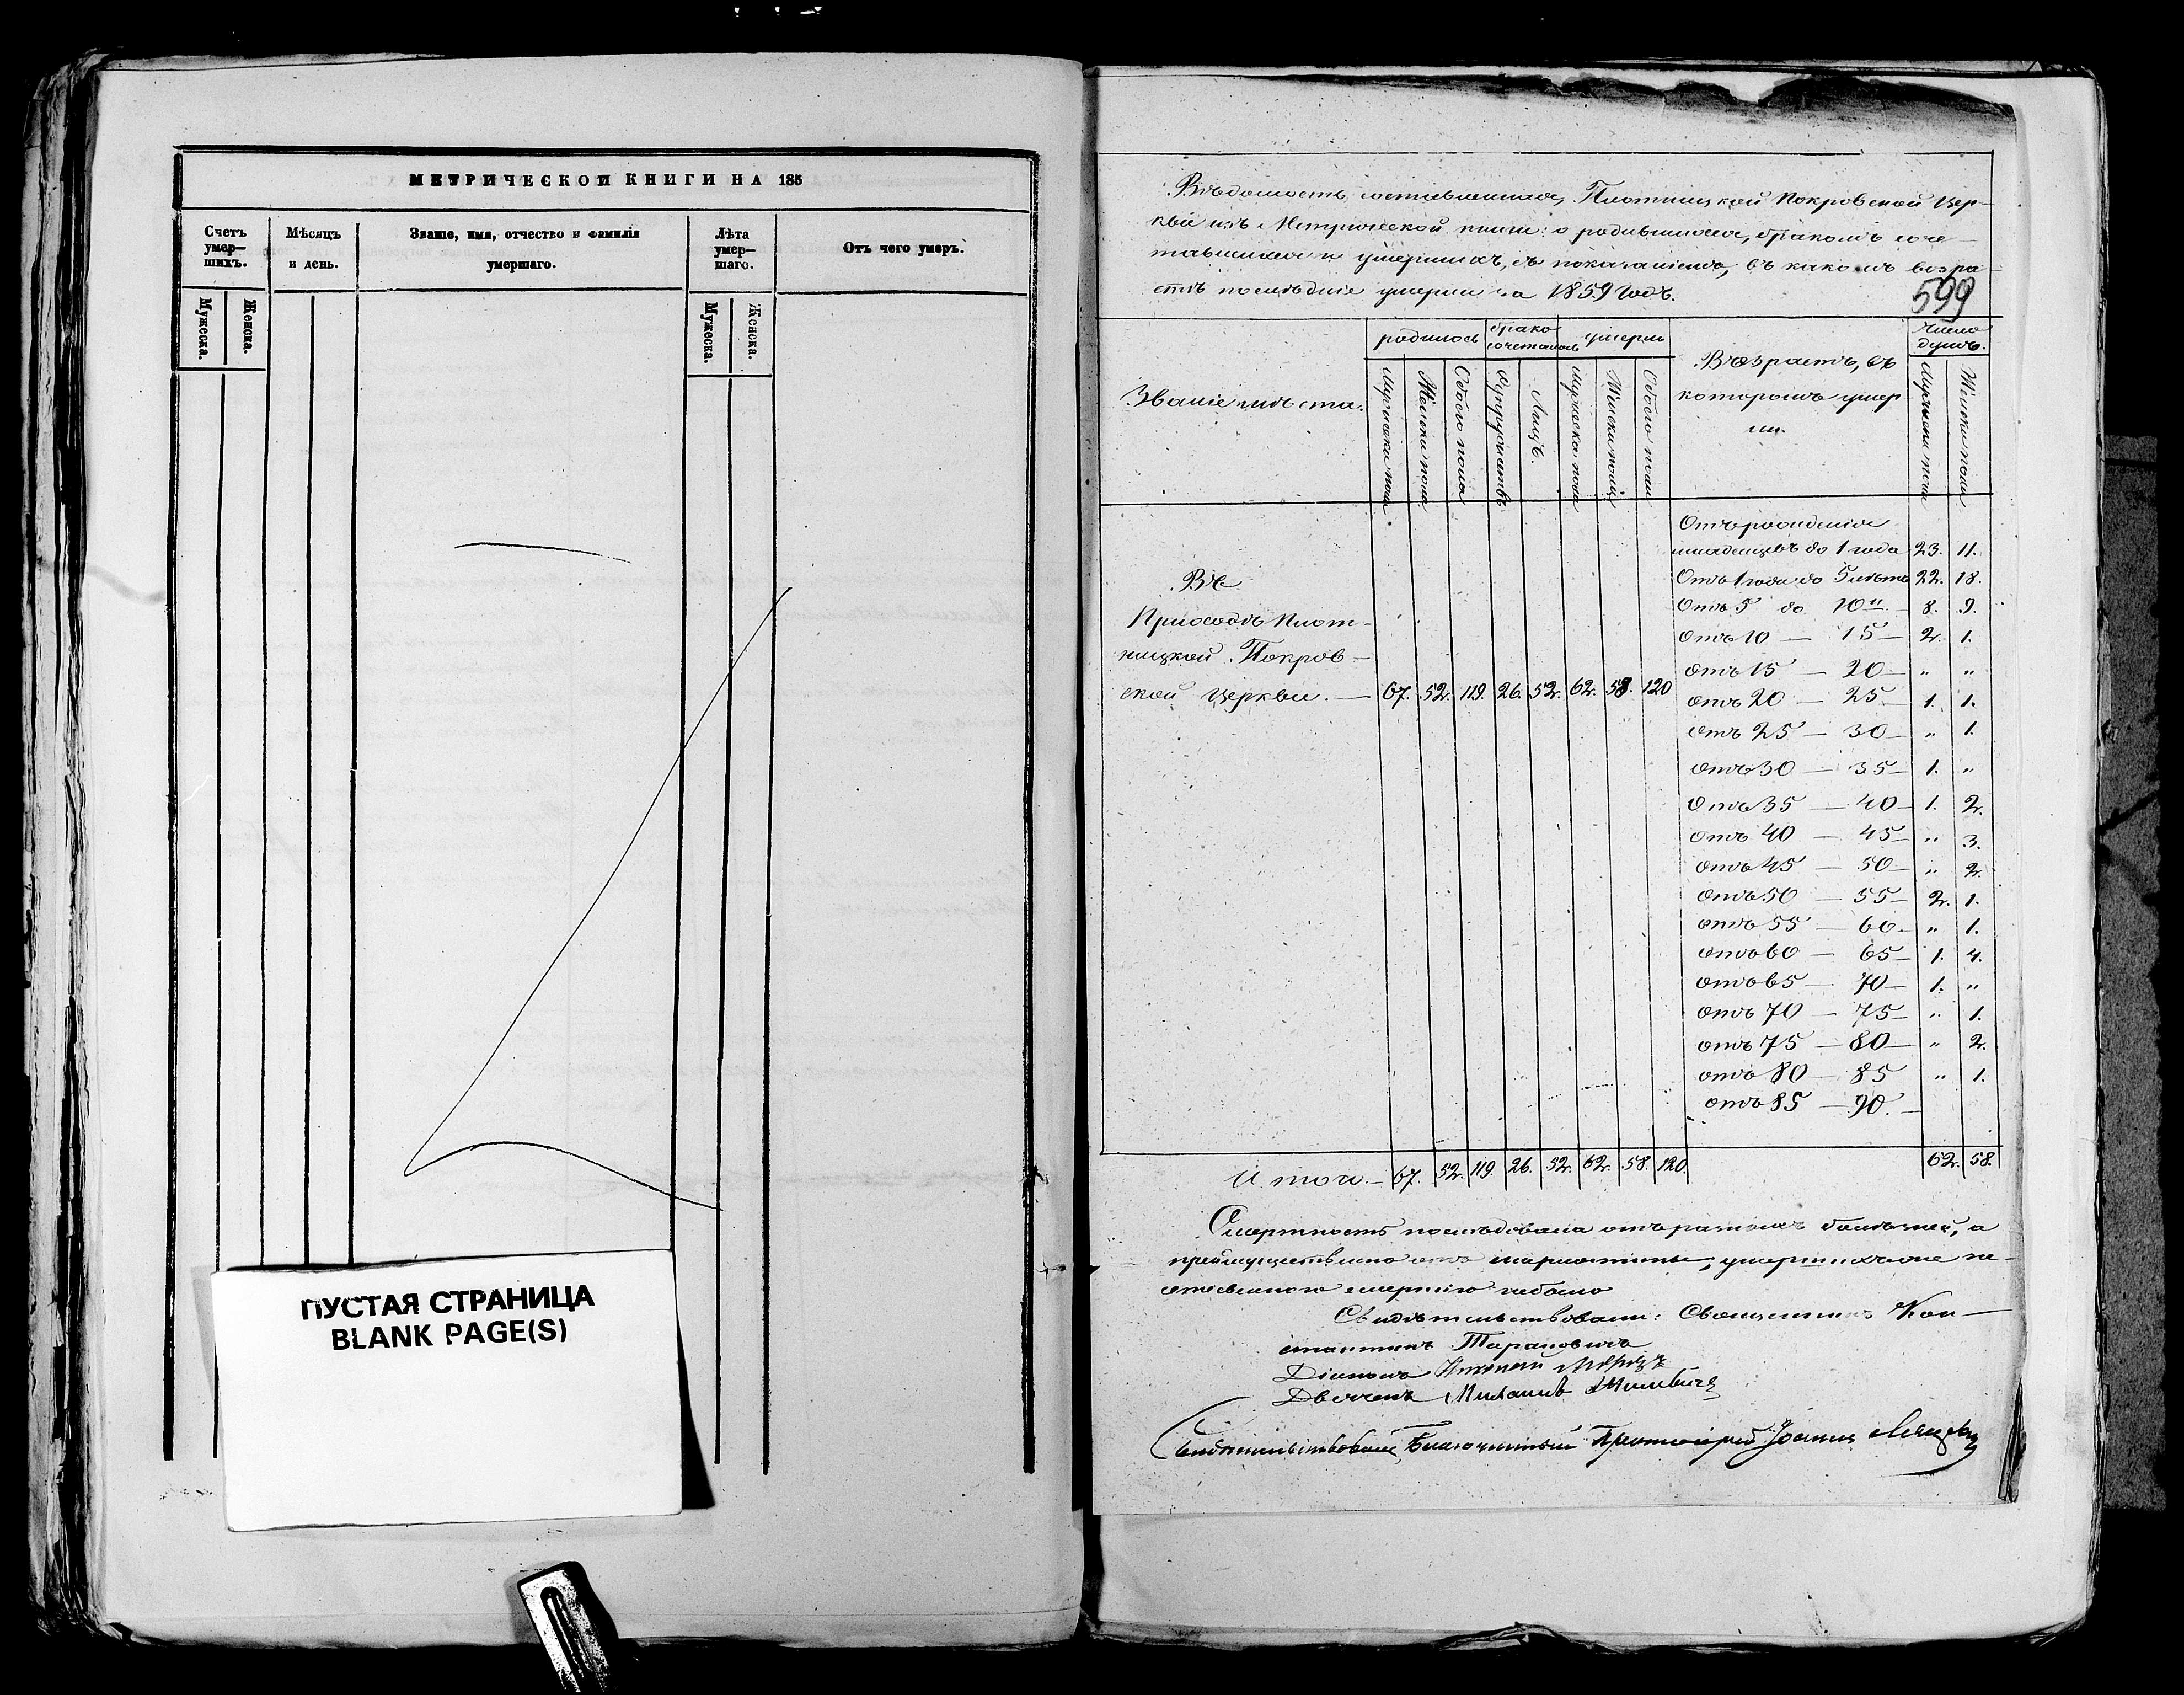 МЕТРИЧЕСКОЙ КНИГИ НА 185
Счетъ умер— шихъ.
Мѣсяцъ и день.
Званіе, имя, отчество и фамилія умершаго.
Лѣта умер— шаго.
Отъ чего умеръ.
Мужеска. Женска.
Мужеска. Женска.
ПУСТАЯ СТРАНИЦА
BLANK PAGE(S)
Вѣдомость составленная Плотницкой Покровской Цер-
кви изъ Метрической книги: о родившихся, бракомъ соче-
тавшихся и умершихъ, съ показаніемъ, въ какомъ возра-
стѣ послѣдніе умерли за 1859 годъ.
599
Званіе мѣста.
родилось
брако сочеталось
умерли
Возрастъ, въ
которомъ умер
ли.
Число душъ.
Мужеска пола Женска пола Обоего пола Супружествъ Лицъ. Мужеска пола Женска пола Обоего пола Мужеска пола Женска пола
Отъ рожденія
младенцевъ до 1 года 23. 11.
Отъ 1 года до 5 лѣтъ 22. 18.
Отъ 5 до 10 " — 8. 9.
Отъ 10 — 15 — 2. 1.
отъ 15 — 20 — " "
отъ 20 — 25 — 1. 1.
отъ 25 — 30 — " 1.
отъ 30 — 35 — 1. "
Отъ 35 — 40 — 1. 2.
отъ 40 — 45 — " 3.
отъ 45 — 50 — " 2.
отъ 50 — 55 — 2. 1.
отъ 55 — 60 — " 1.
отъ 60 — 65 — 1. 4.
отъ 65 — 70 — 1. "
отъ 70 — 75 — " 1.
отъ 75 — 80 — " 2.
отъ 80 — 85 " 1.
отъ 85 — 90. —
Въ
Приходѣ Плот-
ницкой Покров—
ской Церкви. — 67. 52. 119. 26. 52. 62. 58. 120
Итого. — 67. 52. 119. 26. 52. 62. 58. 120. 62. 58.
Смертность послѣдовала отъ разныхъ болѣзней, а
преимущественно отъ скарлатины, умершихъ не-
естественною смертію небыло
Свидѣтельствовали: Священникъ Кон—
стантинъ Тарановичъ
Діаконъ Николай
Дьячекъ Михаилъ
Свидѣтельствовалъ Благочинный Протоіерей Іоаннъ